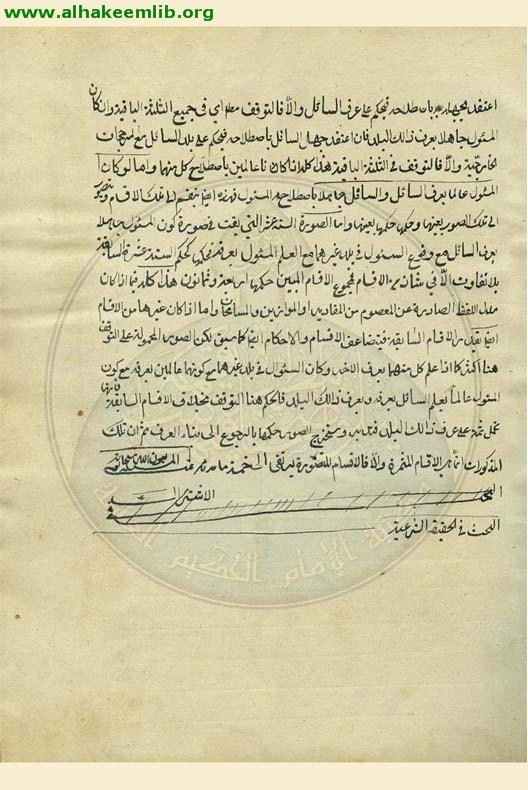 www.alhakeemlib.org
اعتقد بجهله باصطلاحه فيحكم على عرف السائل والا فالتوقف مطلقا اي في جميع الثلثة الباقية وان كان
المسئول جاهلا بعرف ذلك البلد فان اعتقد جهل السائل باصطلاحه فيحكم على بلد السائل مع المرجحات
الخارجية والا فالتوقف في الثلثة الباقية هذا كله اذا كانا عالمين باصطلاح كل منهما واما لو كان
المسئول عالما بعرف السائل والسائل جاهلا باصطلاح المسئول فهذه ايضا تنقسم الى تلك الاقسام
الى تلك الصور بعينها وحكمها حكمها بعينها واما الصورة الستة عشر التي بقيت في صورة كون المسئول جاهلا
بعرف السائل مع وقوع السئول في بلد غيرهما مع العلم المسئول بعرفه فحكمها كحكم الستة عشرة السابقة
بلا تفاوت الا في الاقسام فمجموع الاقسام المبين حكمها اربعة وثمانون هذا كله فيما اذا كان
اللفظ الصادر عن المعصوم من المقادير والموازين والمسافات واما اذا كان غيرها من الاقسام
ايضا الاقسام السابقة فتضاعف الاقسام والاحكام ايضا كما سبق لكن الصور المحمولة على التوقف
هنا اكثر كما اذا علم كل منهما بعرف الاخر وكان السئول في بلد غيرهما مع كونهما عالمين بعرفه مع كون
المسئول عالما بعلم السائل بعرفه وبعرف ذلك البلد فالحكم هنا التوقف بخلاف الاقسام السابقة فانها
تحمل ثمة على عرف ذلك البلد فتدبر وستخرج الصور حكمها بالرجوع الى بناء العرف ثم ان تلك
المذكورات انما هي الاقسام المثمرة والا فالاقسام المتصورة يرتقي الى خمسة
البحث في الحقيقة الشرعية
مكتبة الإمام الحكيم العامة